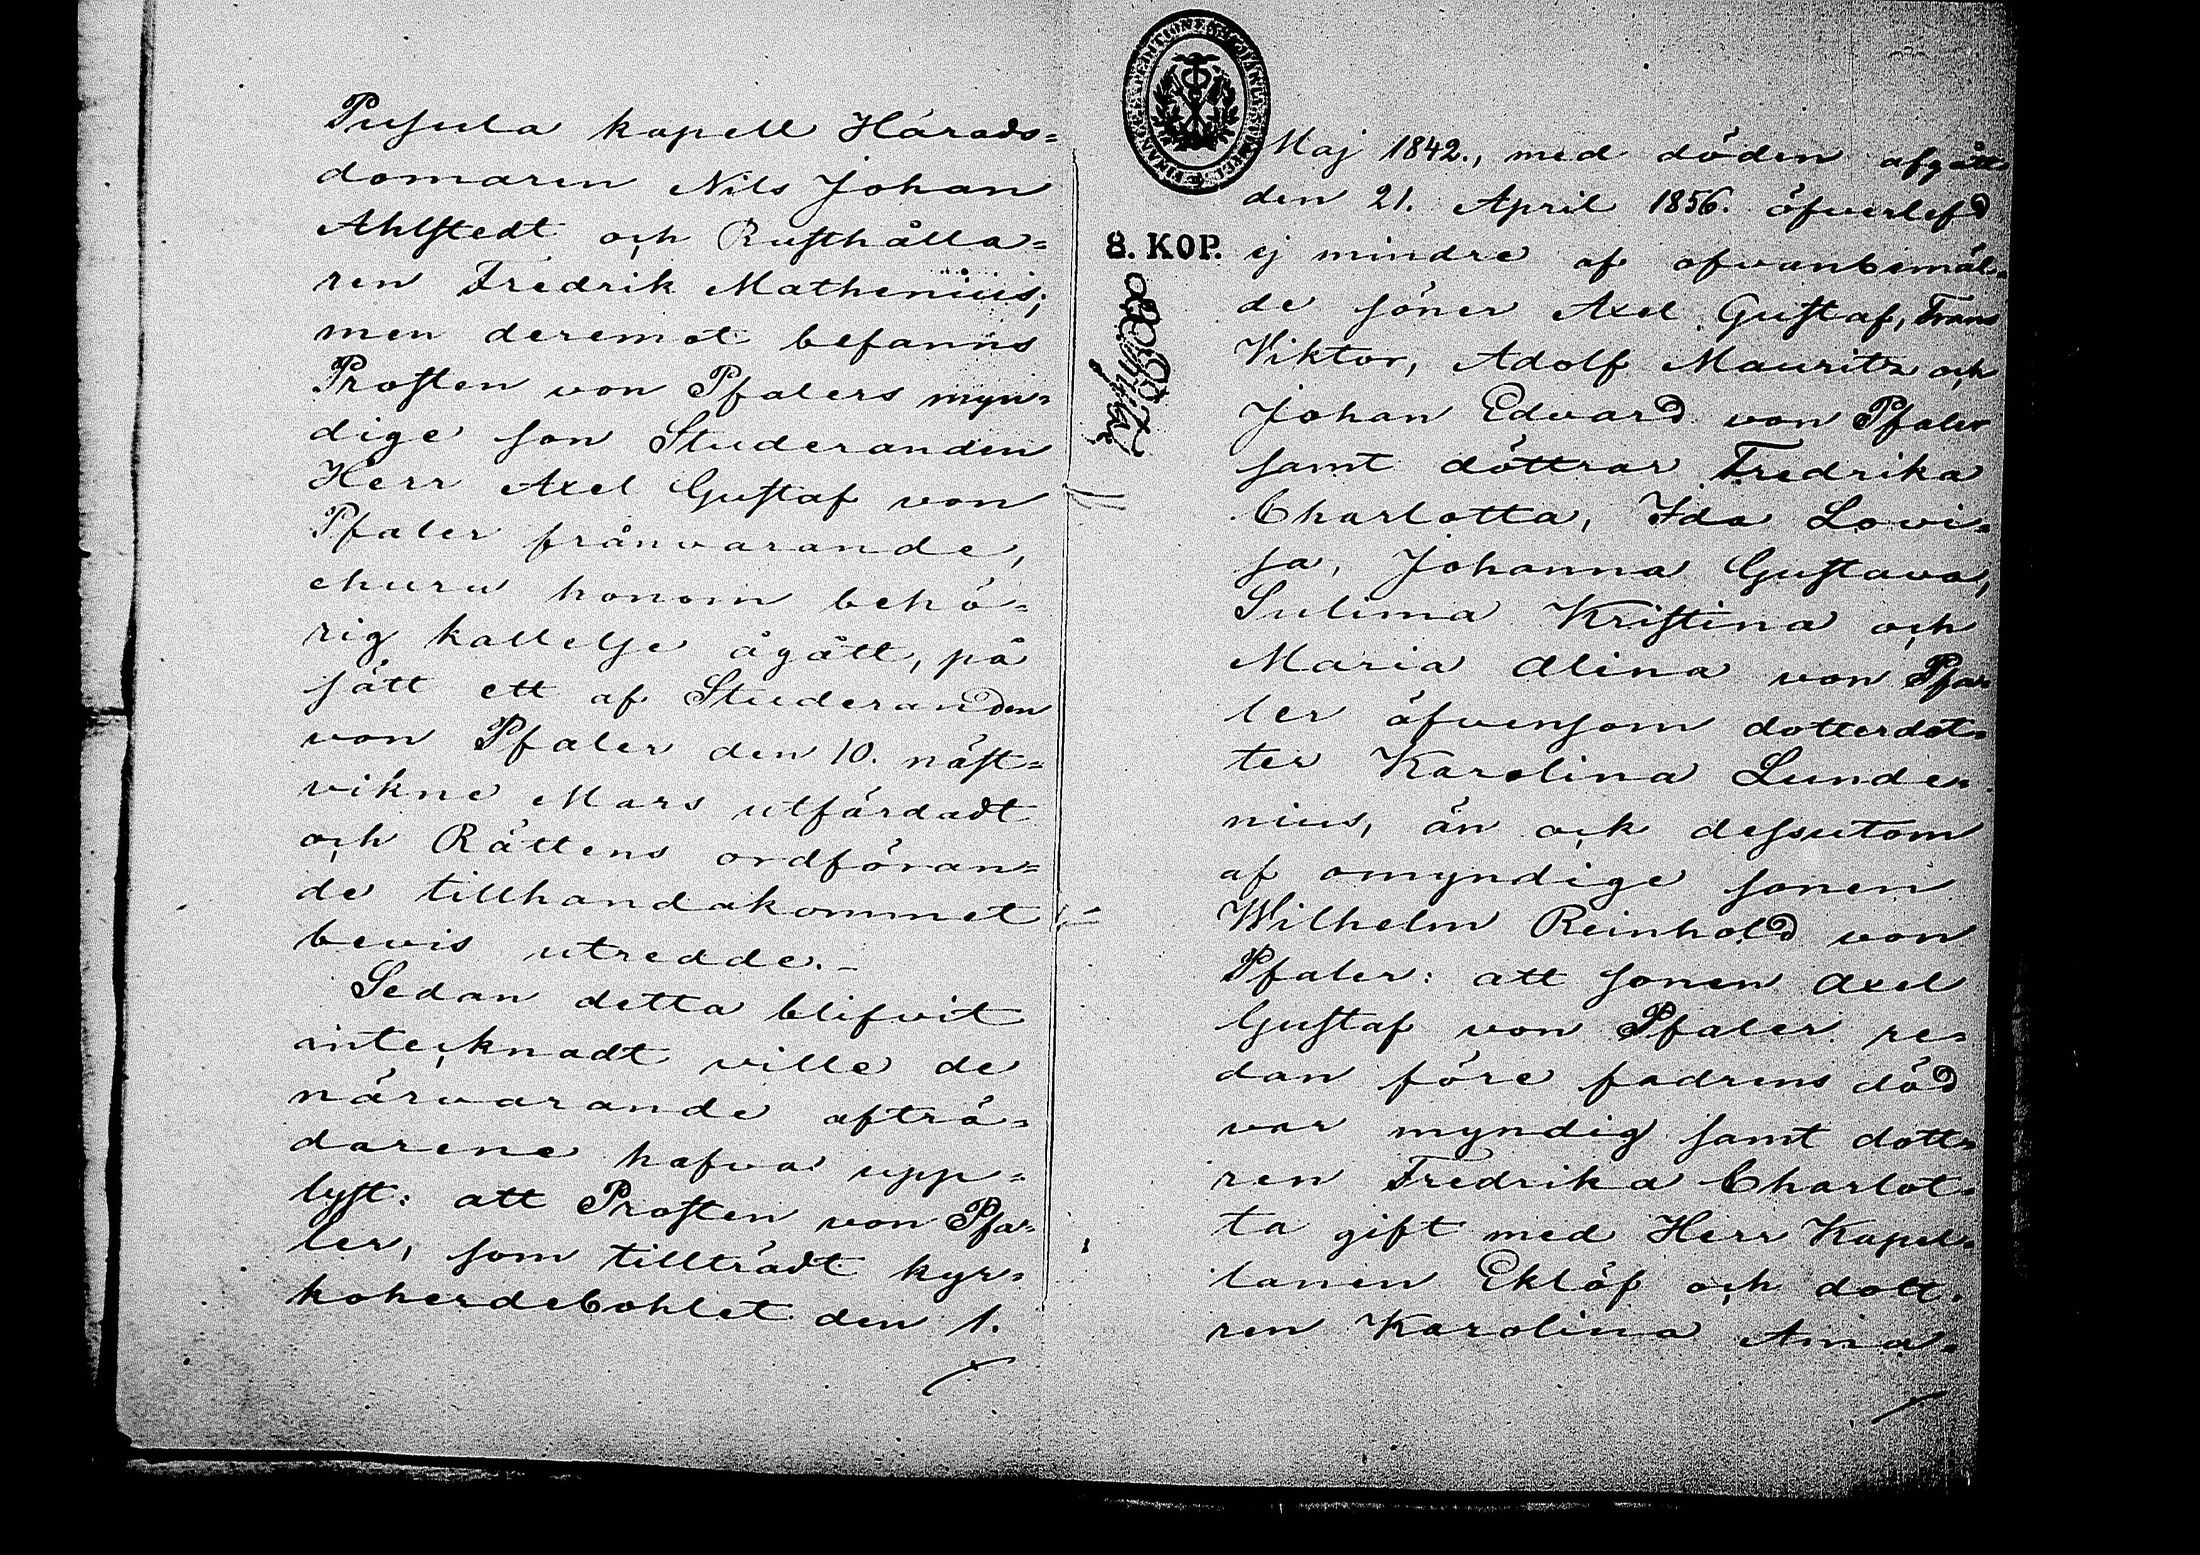 Pusula kapell Härads=
domaren Nils Johan
Ahlstedt och Rusthålla=
ren Fredrik Mathenius;
men deremot befanns
Prosten von Pfalers myn=
dige son Studeranden
Herr Axel Gustaf von
Pfaler frånvarande,
ehuru honom behö=
rig kallelse ågått, på
sätt ett af Studeranden
von Pfaler den 10. näst=
vikne Mars utfärdadt
och Rättens ordföran=
de tillhandakommet
bevis utredde.–
Sedan detta blifvit
antecknadt ville de
närvarande afträ=
darene hafva upp=
lyst: att Prosten von Pfa=
ler, som tillträdt kyr=
koherdebohlet den 1.
8. KOP.
Maj 1842., med döden afgått
den 21. April 1856. öfverlefd
ej mindre af ofvanbemäl=
de söner Axel Gustaf, Frans
Viktor, Adolf Mauritz och
Johan Edvard von Pfaler
samt döttrar Fredrika
Charlotta, Ida Lovi=
sa, Johanna Gustava,
Sulima Kristina och
Maria Alina von Pfa=
ler äfvensom dotterdot=
ter Karolina Lunde=
nius, än ock dessutom
af omyndige sonen
Wilhelm Reinhold von
Pfaler: att sonen Axel
Gustaf von Pfaler re=
dan före fadrens död
var myndig samt dott=
ren Fredrika Charlot=
ta gift med Herr Kapel=
lanen Eklöf och dott=
ren Karolina Ama=